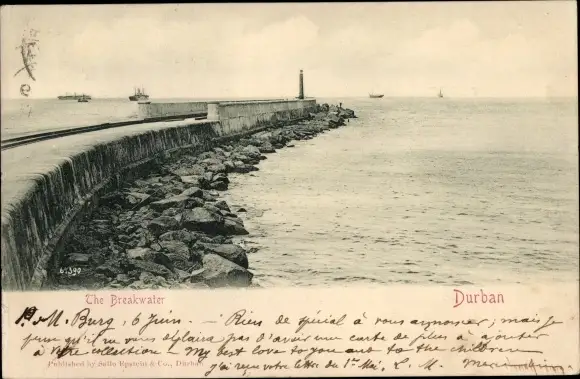 61,390
The Breakwater
Durban
P. M. Burg, 6 Juin. — Rien de spécial à vous annoncer, mais je
pense qu'il ne vous déplaira pas d'avoir une carte de plus à ajouter
à votre collection — My best love to you and to the children
Published by Sallo Epstein & Co., Durban
j'ai reçu votre lettre du 1er Mai, L. M.